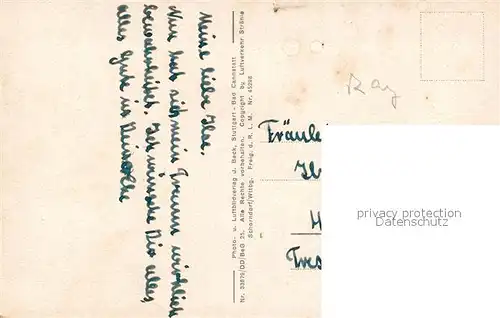 Meine liebe Ilse,
Nun hat sich mein Traum wirklich
bewahrheitet. Ich wünsche Dir alles,
alles Gute in
Photo- u. Luftbildverlag J. Beck, Stuttgart - Bad Cannstatt
Nr. 33879/DD/BeG 25. Alle Rechte vorbehalten. Copyright by Luftverkehr Strähle
Schorndorf/Wttbg. Freig. d. R. L. M. Nr. 45266
Ray
Fräule
H
Tres
privacy protection
Datenschutz